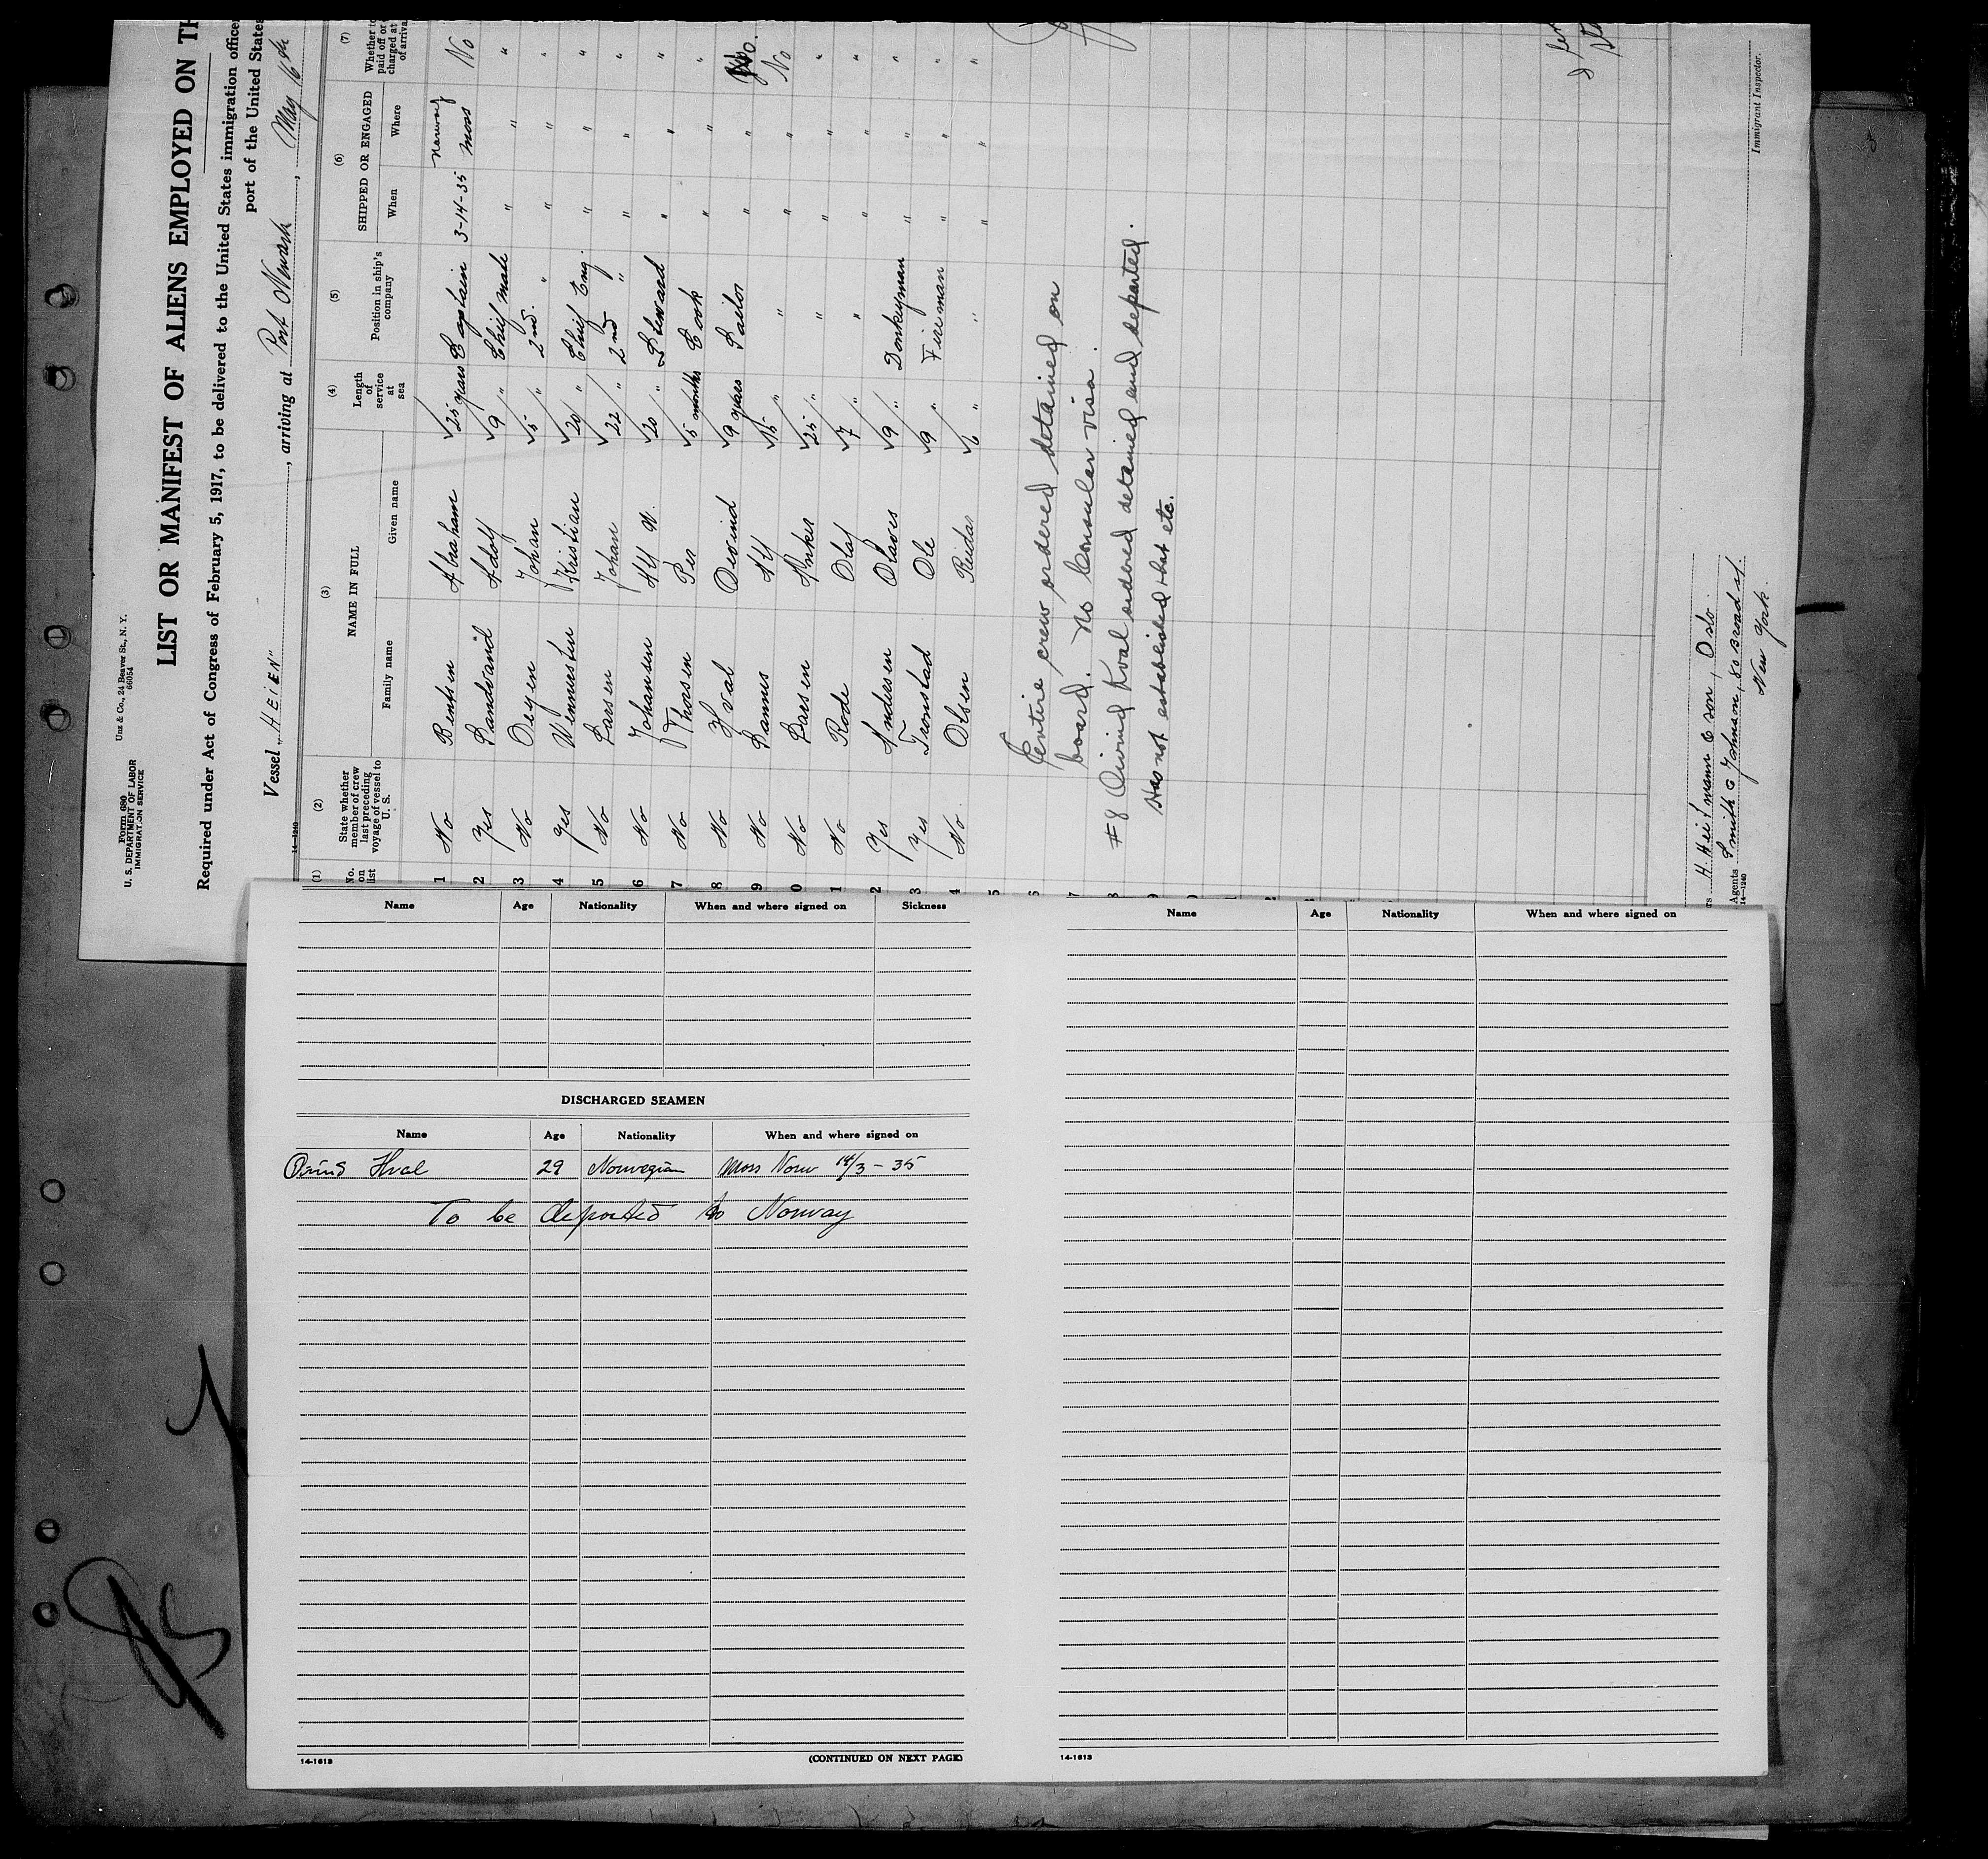 Form 680
U. S. DEPARTMENT OF LABOR
IMMIGRATION SERVICE
Unz & Co., 24 Beaver St., N. Y.
66054
LIST OR MANIFEST OF ALIENS EMPLOYED ON TH
Required under Act of Congress of February 5, 1917, to be delivered to the United States immigration officer
port of the United States
Vessel "HEIEN", arriving at Port Newark, May 16th
14—1240
(1) (2) (3) (4) (5) (6) (7)
No. on list
State whether member of crew last preceding voyage of vessel to U. S.
NAME IN FULL
Family name Given name
Length of service at sea
Position in ship's company
SHIPPED OR ENGAGED
When Where
Whether to paid off or charged at of arriva
Norway
1 No Bentsen Abraham √25 years Captain 3-14-35 Moss No
2 Yes Sandvand Adolf √9 " Chief mate " " "
3 No Oegen Johan √5 " 2nd. " " " "
4 Yes Wennersten Kristian √20 " Chief Eng. " " "
5 No Larsen Johan √22 " 2nd " " " "
6 No Johansen Alf W. √20 " Steward " " "
7 No Thorsen Per √5 months Cook " " "
8 No Hval Oeivind √9 years Sailor " " No.
9 No Sannes Alf √15 " " " " No
0 No Larsen Anker √25 " " " " "
1 No Rode Olaf √7 " " " " "
2 Yes Andersen Olaves √9 " Donkeyman " " "
3 Yes Tronstad Ole √9 " Fireman " " "
4 No. Olsen Reidar √6 " " " " "
5
6 Entire crew ordered detained on
7 board. No Consular visa.
8 #8 Oivind Kval ordered detained and deported.
9 Has not established that etc.
H. Heitmann & son, Oslo.
Agents Smith & Johnson, 80 Broad st.
New York
14—1240
Immigrant Inspector.
Name Age Nationality When and where signed on Sickness
DISCHARGED SEAMEN
Name Age Nationality When and where signed on
Hval 29 Norwegian Moss Norw 14/3 - 35
To be deported to Norway
14-1613
(CONTINUED ON NEXT PAGE)
Name Age Nationality When and where signed on
14-1613